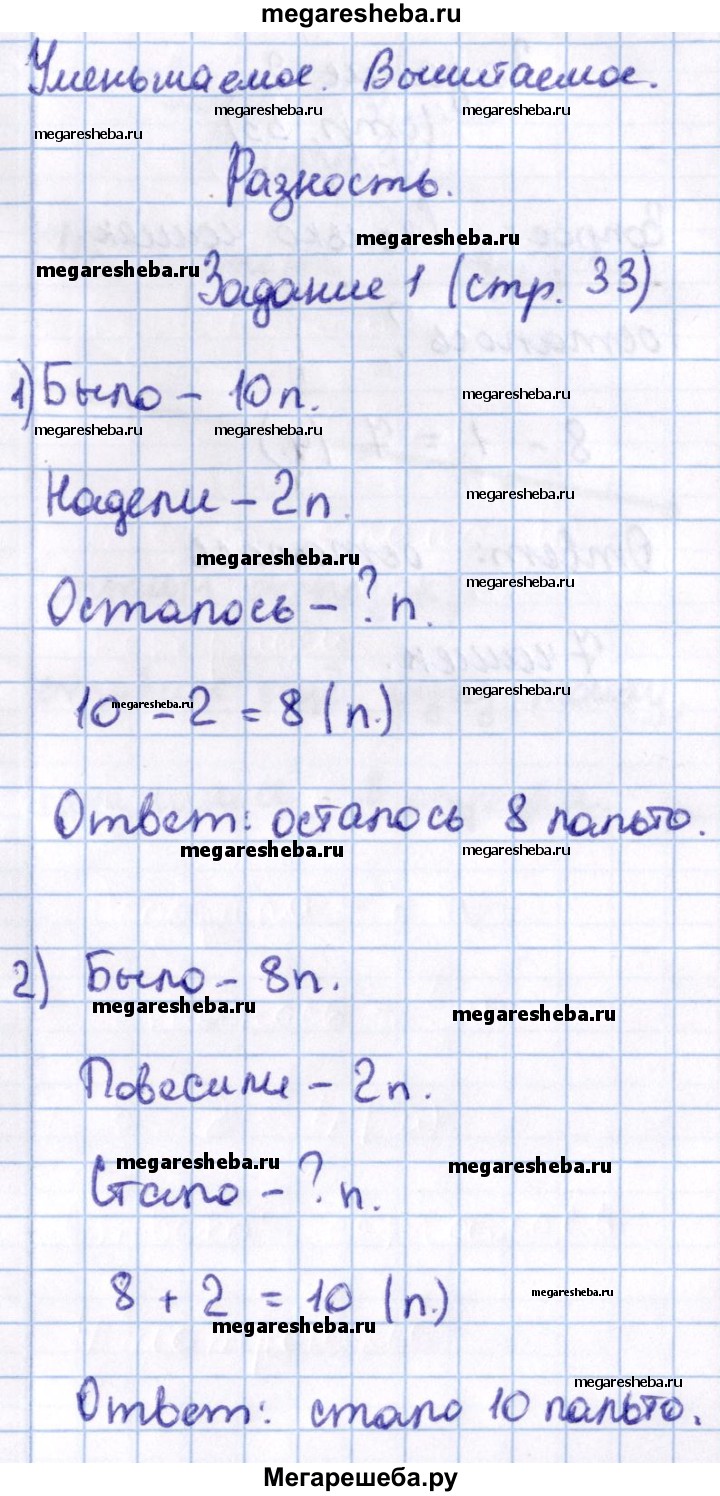 megaresheba.ru
Уменьшаемое. Вычитаемое.
megaresheba.ru megaresheba.ru
megaresheba.ru
Разность.
megaresheba.ru
megaresheba.ru
Задание 1 (стр. 33)
1) Было – 10 п.
megaresheba.ru
megaresheba.ru megaresheba.ru
Надели – 2 п.
megaresheba.ru
megaresheba.ru
Осталось – ? п.
megaresheba.ru
megaresheba.ru
megaresheba.ru
10 – 2 = 8 (п.)
Ответ: осталось 8 пальто.
megaresheba.ru megaresheba.ru
2) Было – 8 п.
megaresheba.ru megaresheba.ru
Повесили – 2 п.
megaresheba.ru megaresheba.ru
Стало – ? п.
8 + 2 = 10 (п.)
megaresheba.ru
megaresheba.ru
megaresheba.ru
Ответ: стало 10 пальто.
Мегарешеба.ру